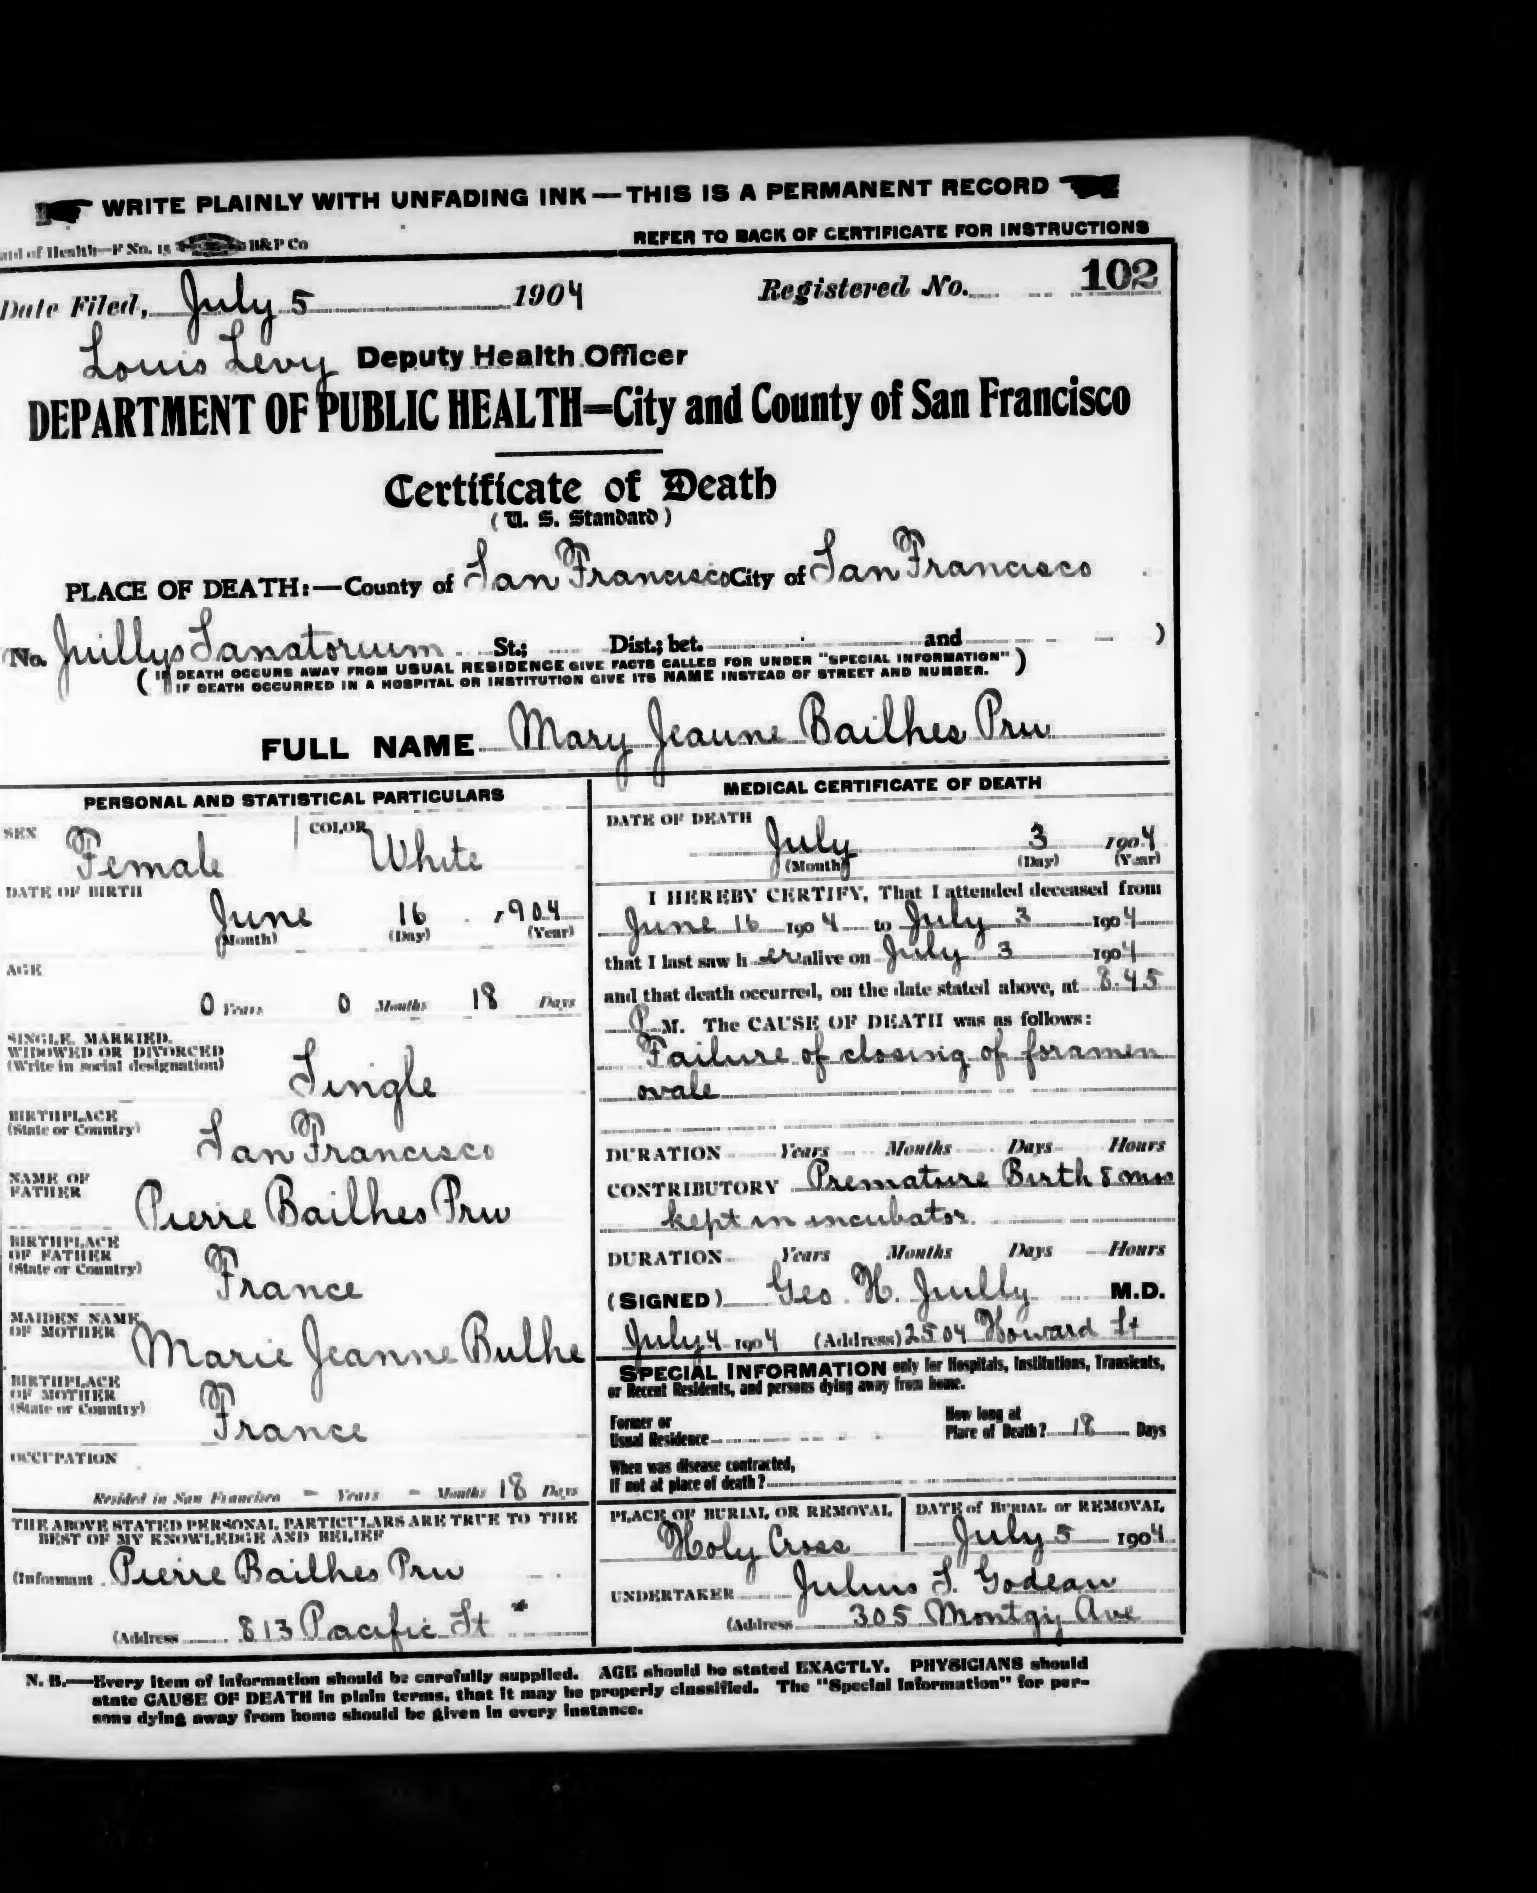 WRITE PLAINLY WITH UNFADING INK — THIS IS A PERMANENT RECORD
of Health—F No. 15 B&P Co
REFER TO BACK OF CERTIFICATE FOR INSTRUCTIONS
Date Filed, July 5 1904 Registered No. 102
Louis Levy Deputy Health Officer
DEPARTMENT OF PUBLIC HEALTH=City and County of San Francisco
Certificate of Death
(U. S. Standard)
PLACE OF DEATH:—County of San Francisco City of San Francisco
(No. Juillys Sanatorium St.; Dist.; bet. and )
(IF DEATH OCCURS AWAY FROM USUAL RESIDENCE GIVE FACTS CALLED FOR UNDER "SPECIAL INFORMATION"
IF DEATH OCCURRED IN A HOSPITAL OR INSTITUTION GIVE ITS NAME INSTEAD OF STREET AND NUMBER.)
FULL NAME Mary Jeanne Bailhes Pru
PERSONAL AND STATISTICAL PARTICULARS
SEX Female COLOR White
DATE OF BIRTH
June 16 1904
(Month) (Day) (Year)
AGE
0 Years 0 Months 18 Days
SINGLE, MARRIED,
WIDOWED OR DIVORCED
(Write in social designation)
Single
BIRTHPLACE
(State or Country)
San Francisco
NAME OF
FATHER
Pierre Bailhes Pru
BIRTHPLACE
OF FATHER
(State or Country)
France
MAIDEN NAME
OF MOTHER
Marie Jeanne Bulhe
BIRTHPLACE
OF MOTHER
(State or Country)
France
OCCUPATION
Resided in San Francisco - Years - Months 18 Days
THE ABOVE STATED PERSONAL PARTICULARS ARE TRUE TO THE
BEST OF MY KNOWLEDGE AND BELIEF
(Informant Pierre Bailhes Pru
(Address 813 Pacific St
MEDICAL CERTIFICATE OF DEATH
DATE OF DEATH
July 3 1904
(Month) (Day) (Year)
I HEREBY CERTIFY, That I attended deceased from
June 16 1904 to July 3 1904
that I last saw h er alive on July 3 1904
and that death occurred, on the date stated above, at 8.45
P M. The CAUSE OF DEATH was as follows:
Failure of closing of foramen
ovale
DURATION Years Months Days Hours
CONTRIBUTORY Premature Birth 8 mos
kept in incubator
DURATION Years Months Days Hours
(SIGNED) Geo. H. Juilly M.D.
July 4 1904 (Address) 2504 Howard St
SPECIAL INFORMATION only for Hospitals, Institutions, Transients,
or Recent Residents, and persons dying away from home.
Former or
Usual Residence
How long at
Place of Death? 18 Days
When was disease contracted,
If not at place of death?
PLACE OF BURIAL OR REMOVAL
Holy Cross
DATE of BURIAL or REMOVAL
July 5 1904
UNDERTAKER Julius S. Godeau
(Address 305 Montgy Ave
N. B.—Every item of information should be carefully supplied. AGE should be stated EXACTLY. PHYSICIANS should
state CAUSE OF DEATH in plain terms, that it may be properly classified. The "Special Information" for per-
sons dying away from home should be given in every instance.